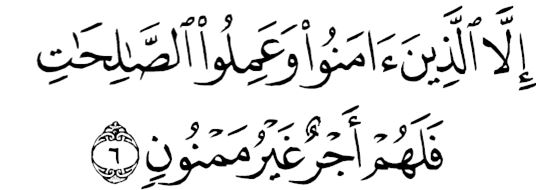 إِلَّا ٱلَّذِينَ ءَامَنُوا۟ وَعَمِلُوا۟ ٱلصَّـٰلِحَـٰتِ
فَلَهُمْ أَجْرٌ غَيْرُ مَمْنُونٍ ٦